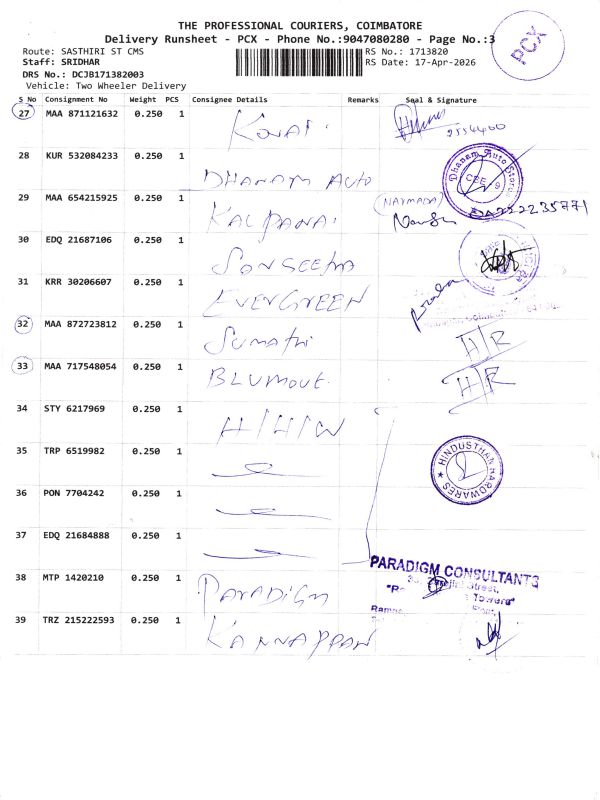 THE PROFESSIONAL COURIERS, COIMBATORE
Delivery Runsheet - PCX - Phone No.:9047080280 - Page No.:3
PCX
Route: SASTHIRI ST CMS
RS No.: 1713820
Staff: SRIDHAR
RS Date: 17-Apr-2026
DRS No.: DCJB171382003
Vehicle: Two Wheeler Delivery
S No Consignment No Weight PCS Consignee Details Remarks Seal & Signature
27 MAA 871121632 0.250 1
2554400
28 KUR 532084233 0.250 1 DHANAM AUTO
Dhanam Auto Stores
CBE 9
29 MAA 654215925 0.250 1 KALPANA (NARMADA)
30 EDQ 21687106 0.250 1
31 KRR 30206607 0.250 1 EVERGREEN
32 MAA 872723812 0.250 1 SUMATHI H/R
33 MAA 717548054 0.250 1 BLUMOUT H/R
34 STY 6217969 0.250 1 H/H/W
35 TRP 6519982 0.250 1
HINDUSTHAN HARDWARES
36 PON 7704242 0.250 1
37 EDQ 21684888 0.250 1
38 MTP 1420210 0.250 1 PARADIGM
PARADIGM CONSULTANTS
Street,
Towers"
39 TRZ 215222593 0.250 1 KANNAPPAN